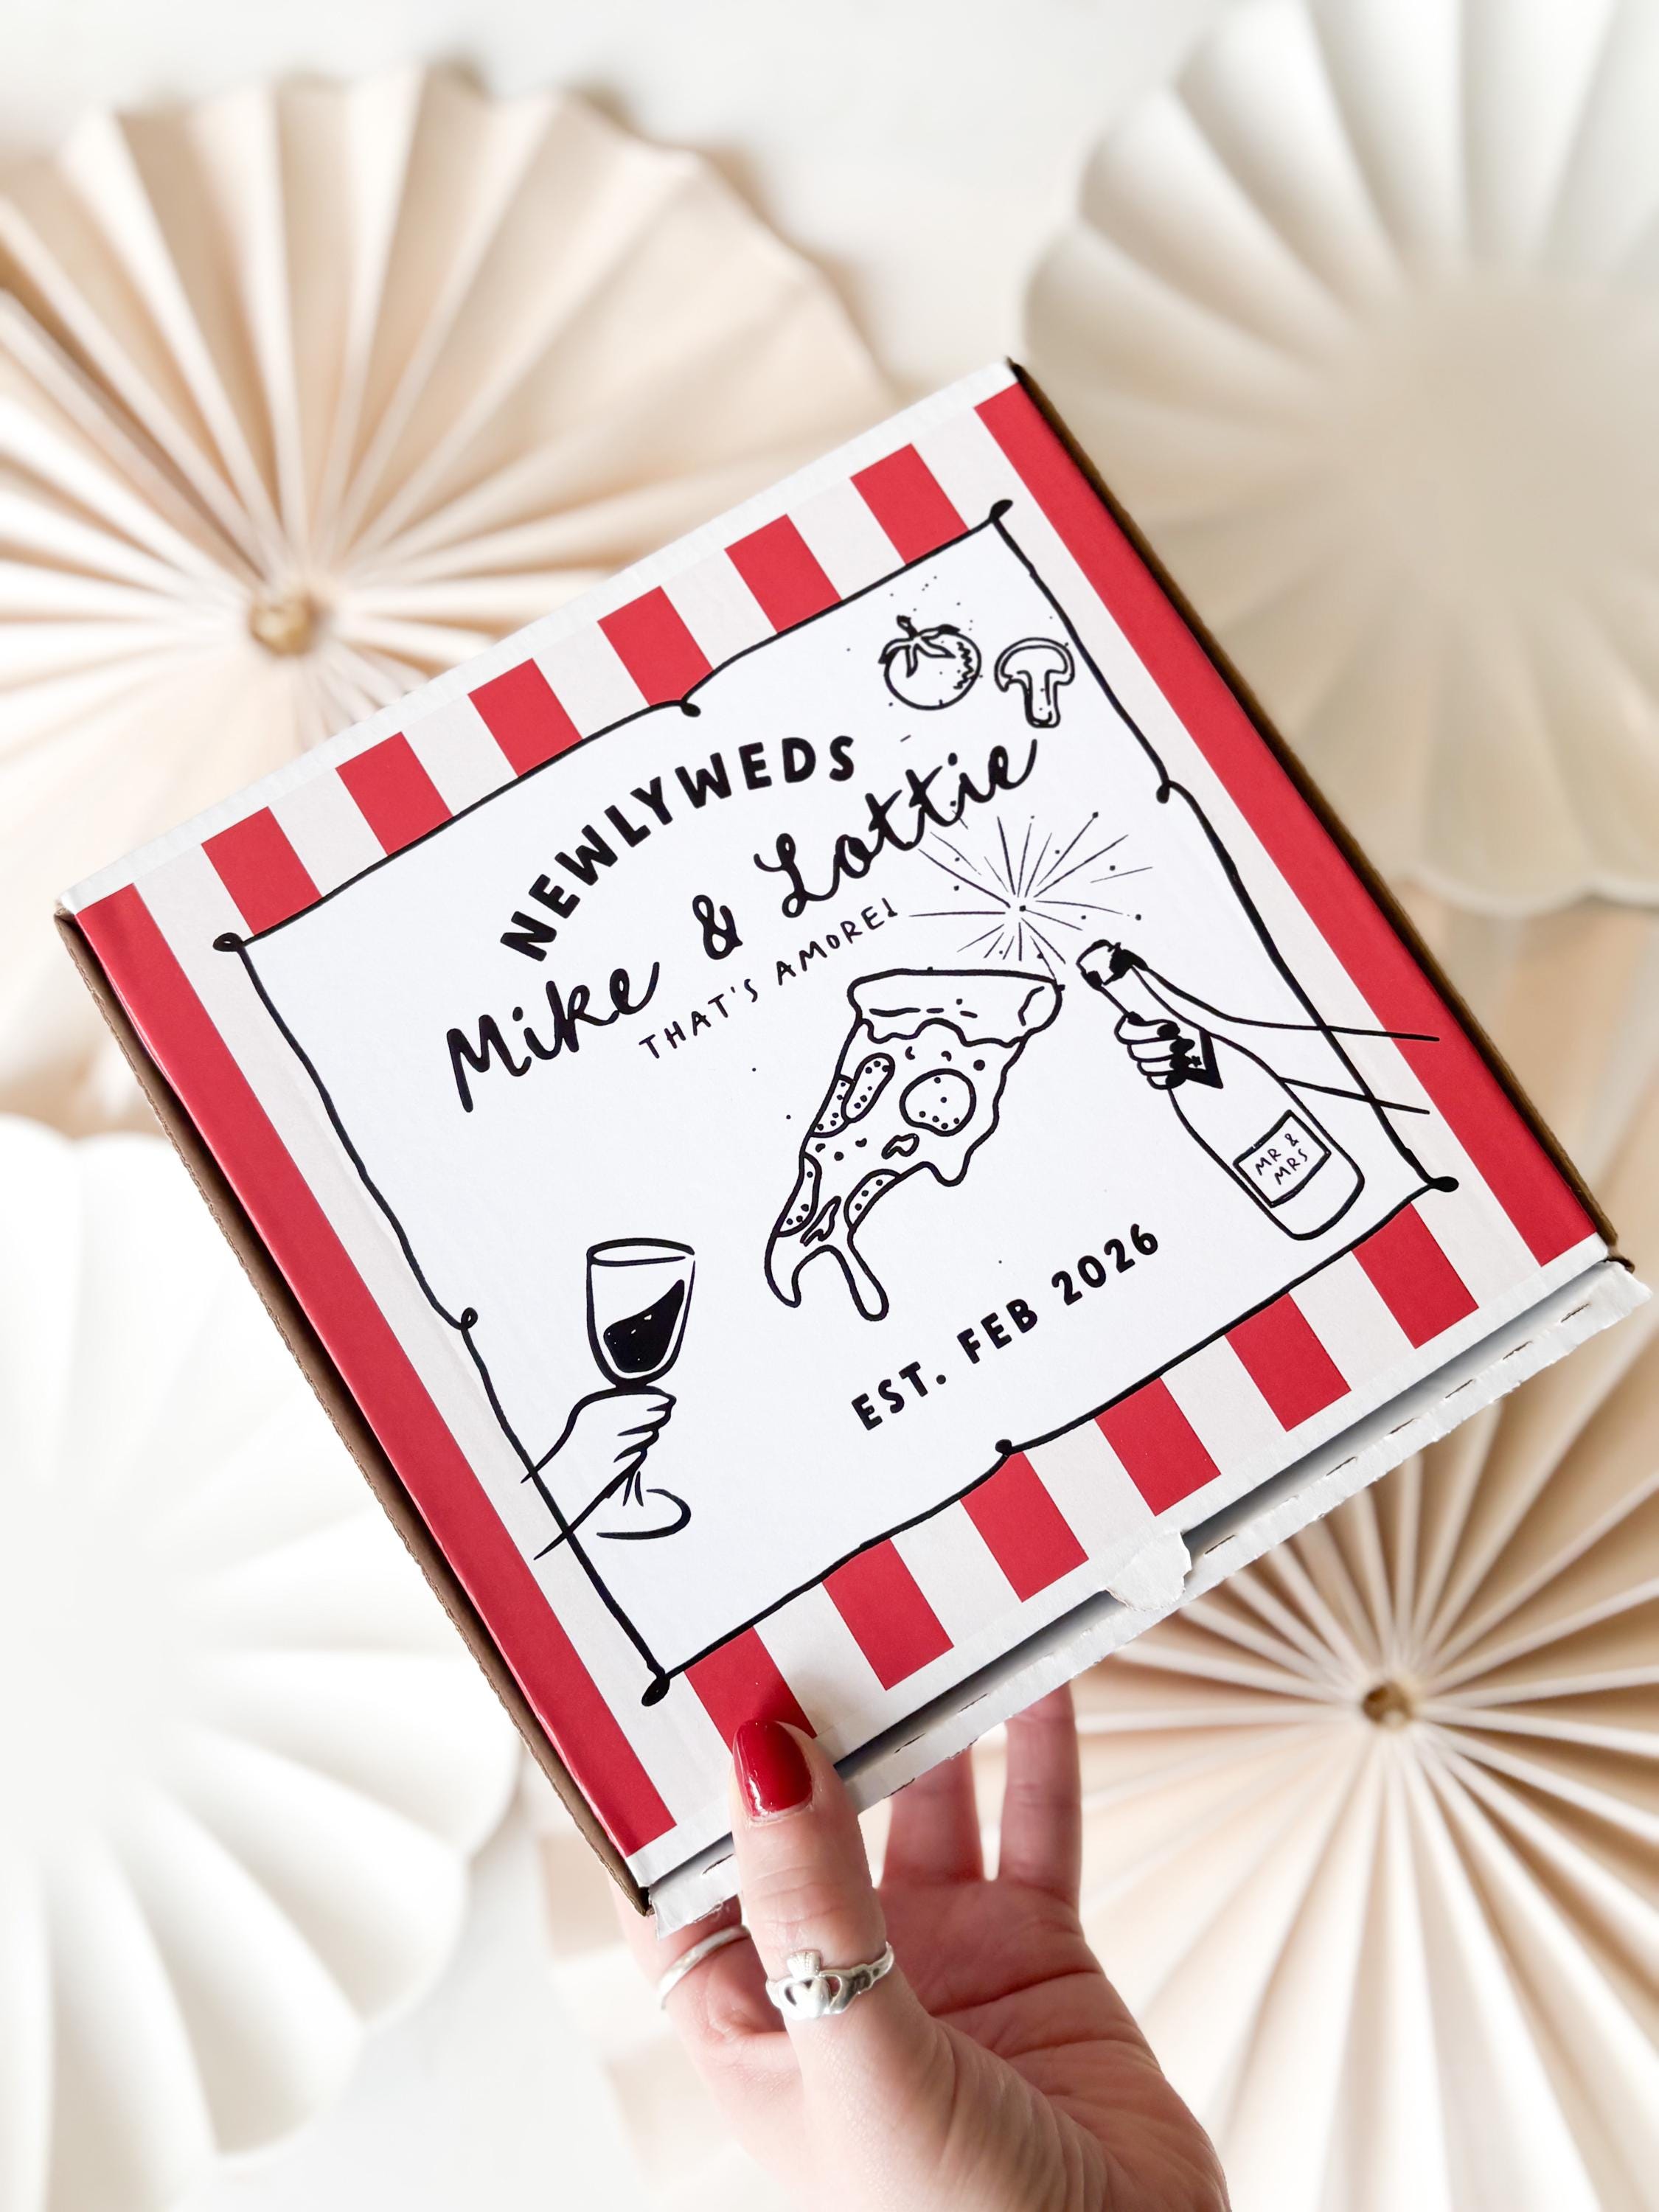 NEWLYWEDS
Mike & Lottie
THAT'S AMORE!
MR &
MRS
EST. FEB 2026